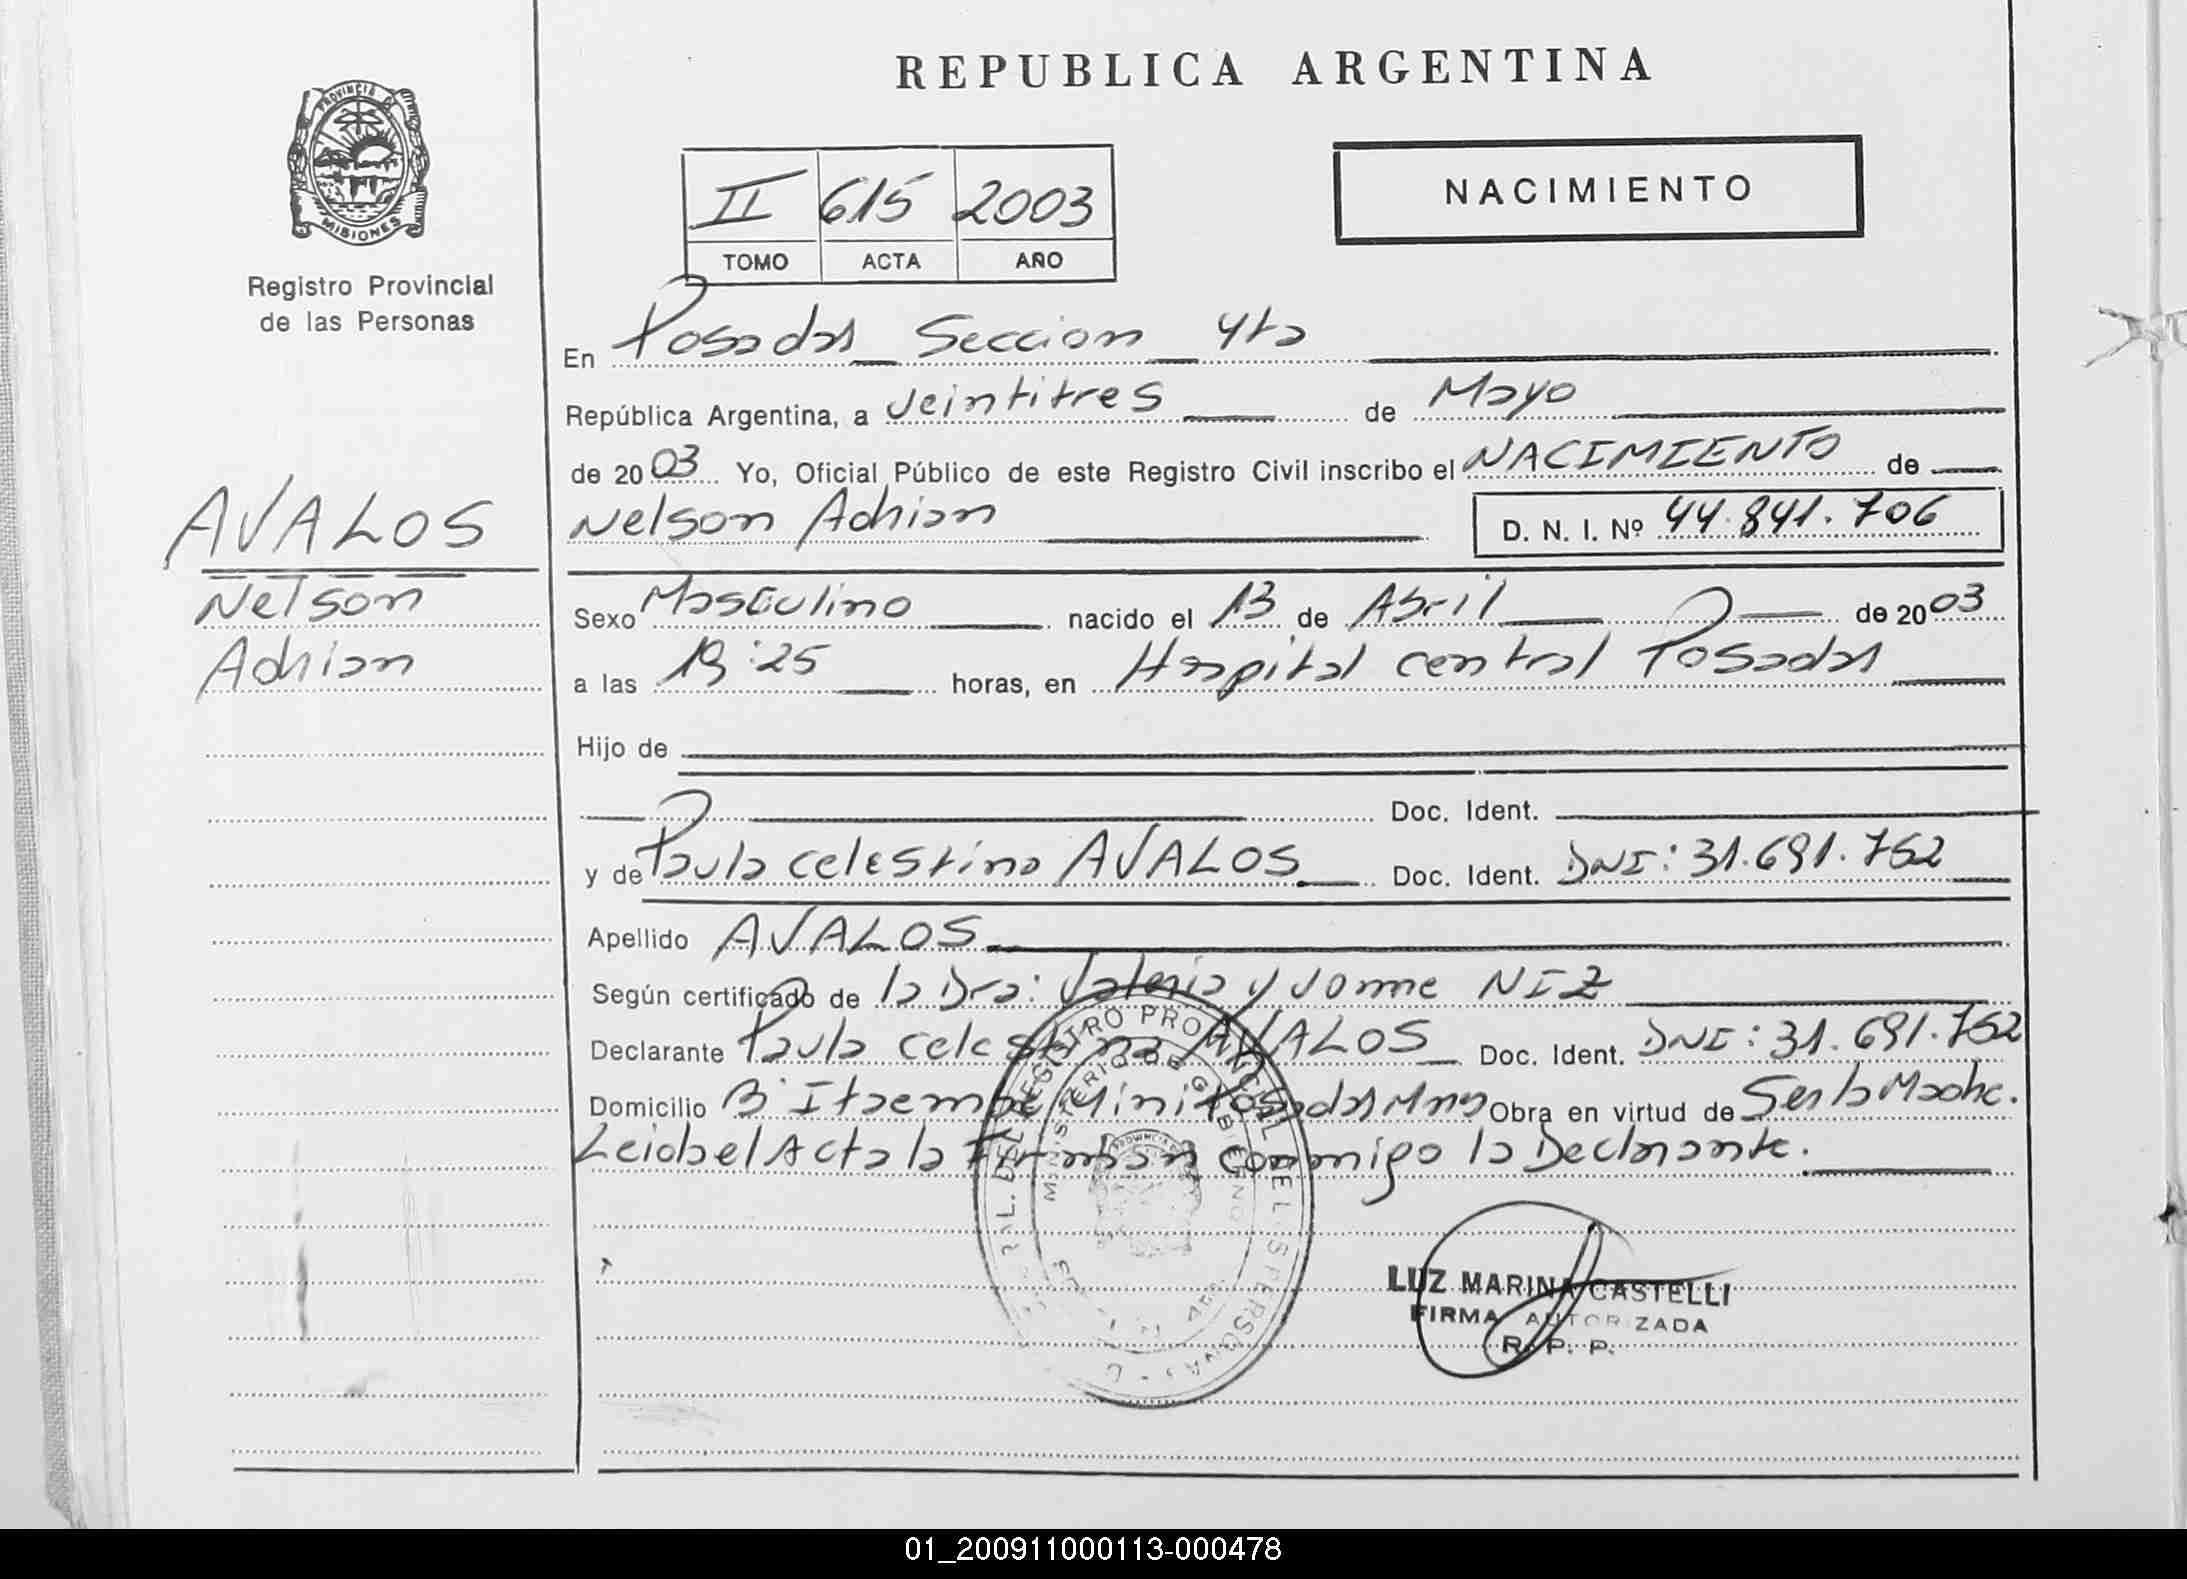 REPUBLICA ARGENTINA
PROVINCIA DE
MISIONES
Registro Provincial
de las Personas
II 615 2003
TOMO ACTA AÑO
NACIMIENTO
En Posadas Seccion 4ta
República Argentina, a veintitres de Mayo
de 2003 Yo, Oficial Público de este Registro Civil inscribo el NACIMIENTO de
Nelson Adrian D. N. I. Nº 44.841.706
AVALOS
Nelson
Adrian
Sexo Masculino nacido el 13 de Abril de 2003
a las 19:25 horas, en Hospital central Posadas
Hijo de
Doc. Ident.
y de Paula Celestina AVALOS Doc. Ident. DNI: 31.691.752
Apellido AVALOS
Según certificado de la Dra: Valeria Yvonne NIZ
Declarante Paula Celestina AVALOS Doc. Ident. DNI: 31.691.752
Domicilio B° Itaembe Mini Posadas Mns Obra en virtud de Ser la Madre.
Leida el Acta la Firman conmigo la Declarante.
REGISTRO PROVINCIAL DE LAS PERSONAS
MINISTERIO DE GOBIERNO
LUZ MARINA CASTELLI
FIRMA AUTORIZADA
R. P. P.
01_200911000113-000478